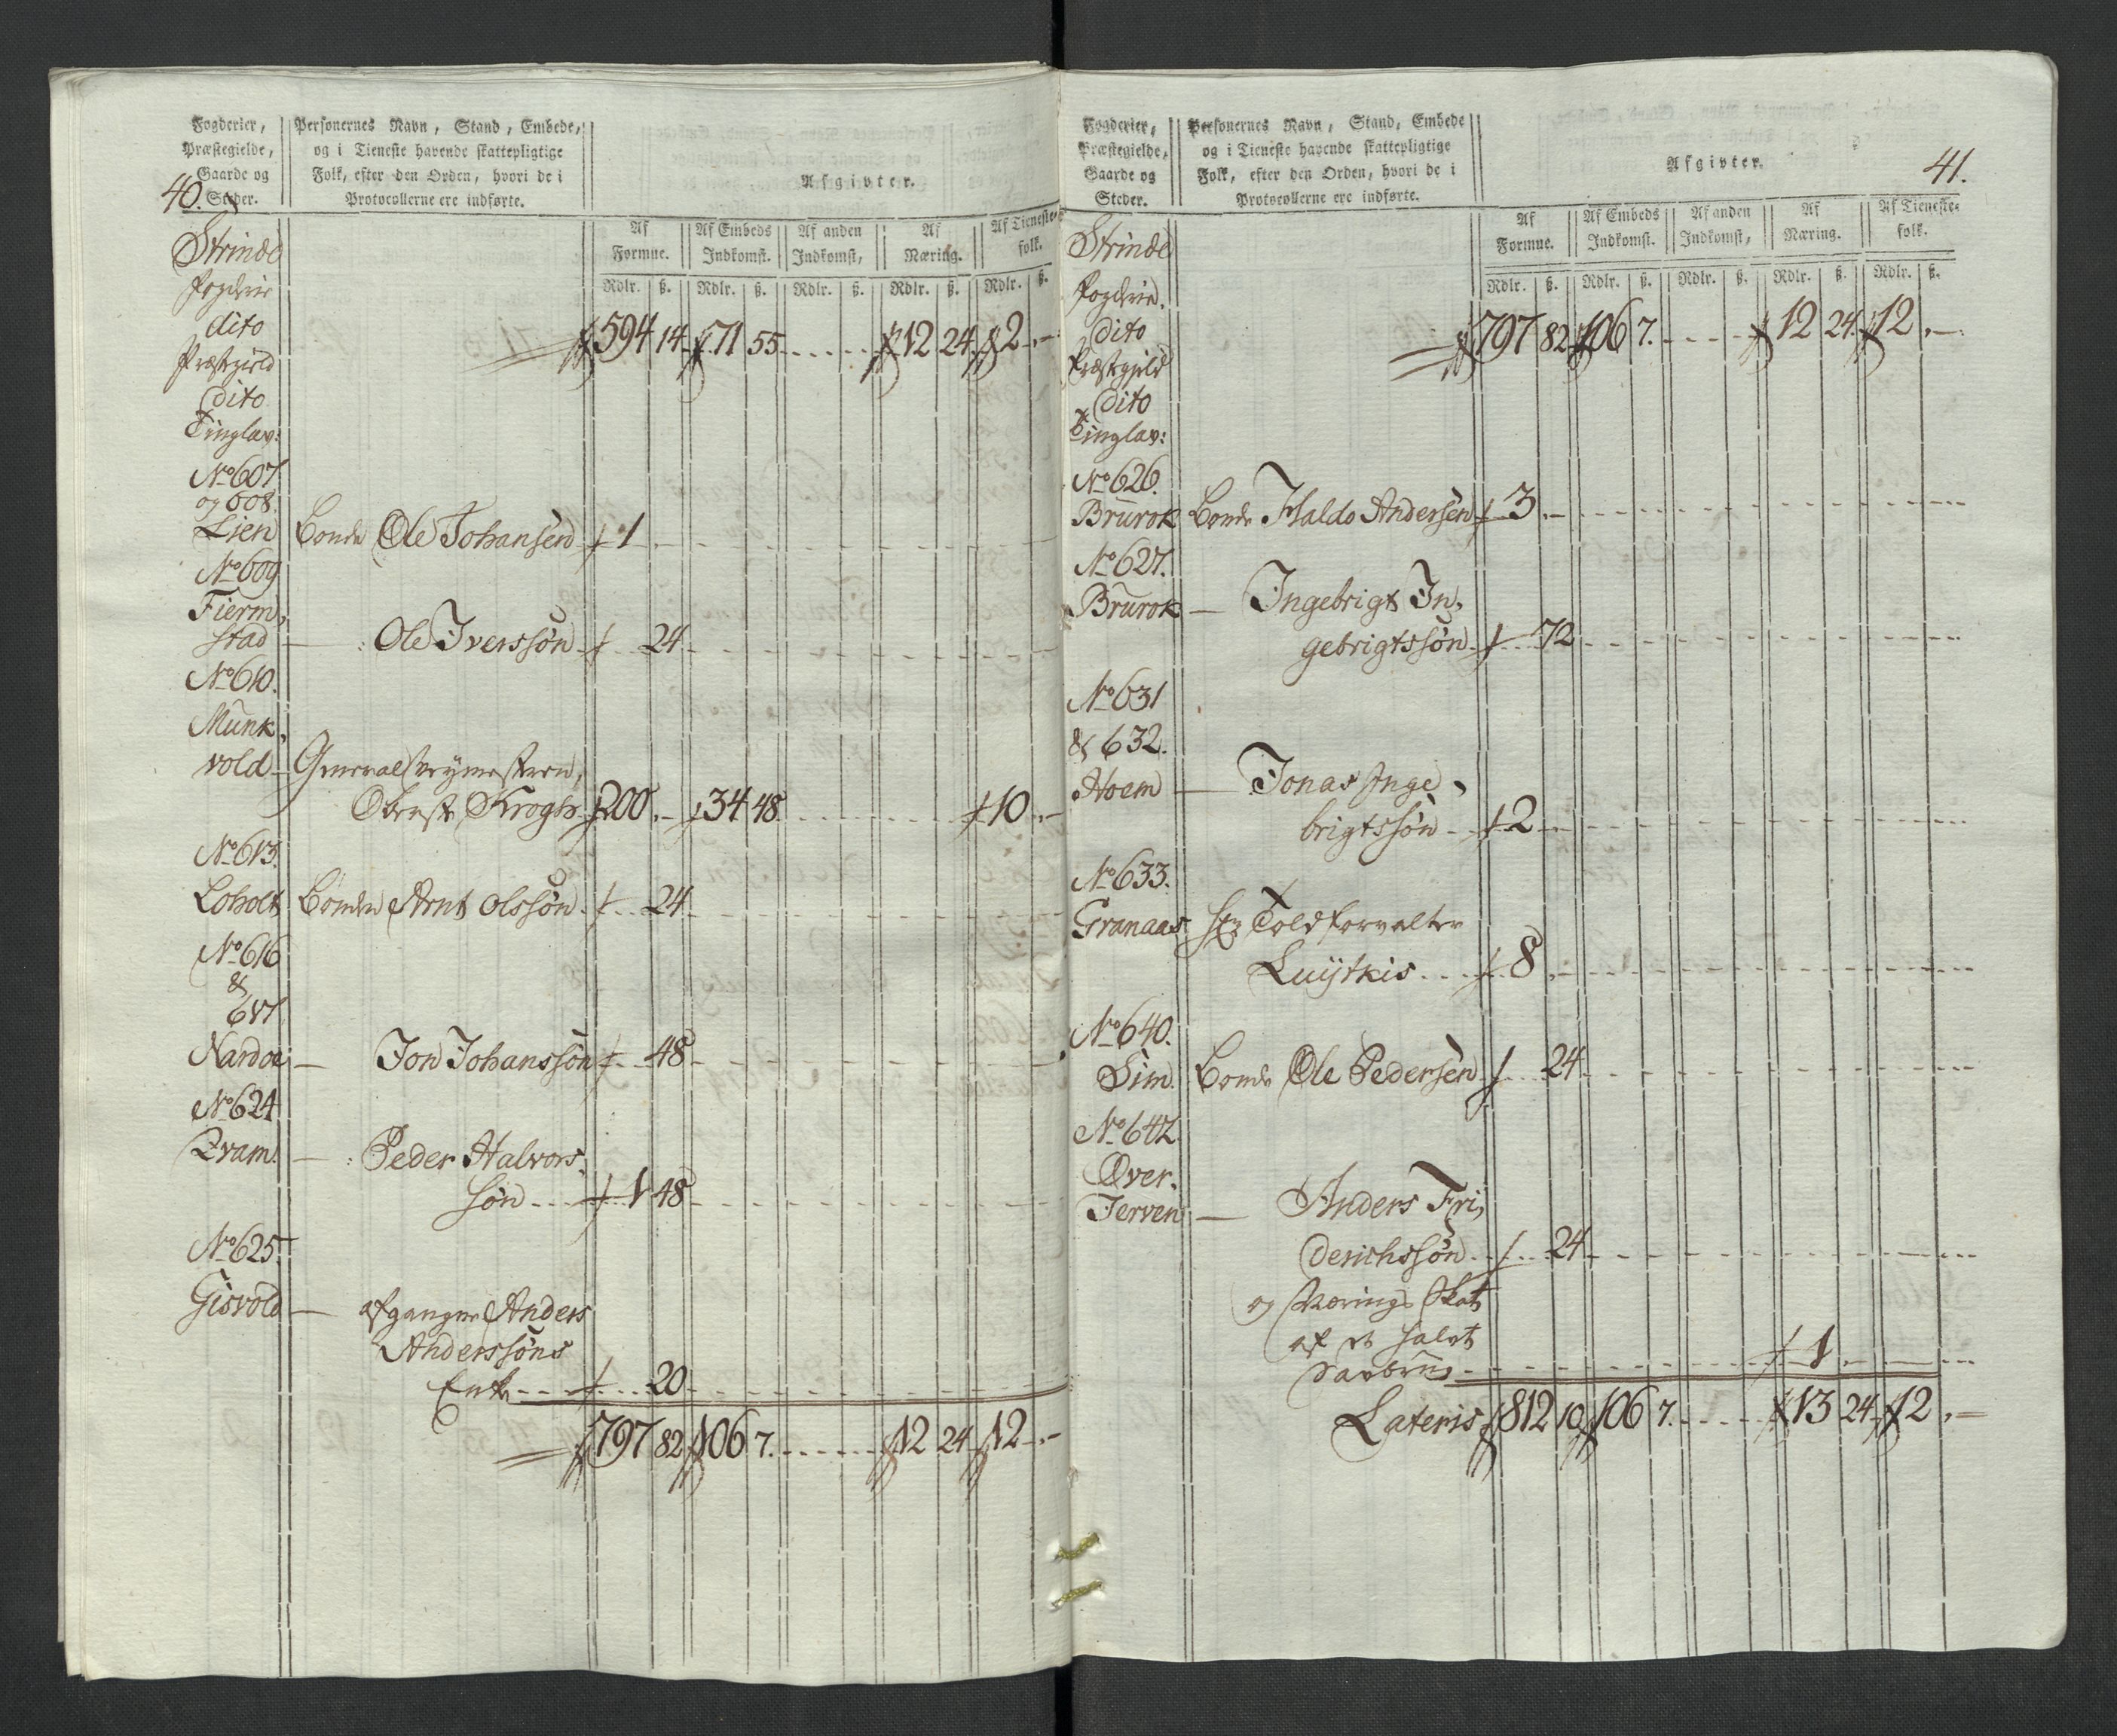 Fogderier,
Præstegielde,
Gaarde og
40. Steder.
Personernes Navn, Stand, Embede,
og i Tieneste havende skattepligtige
Folk, efter den Orden, hvori de i
Protocollerne ere indførte.
Afgivter.
Af Formue. Af Embeds Indkomst. Af anden Indkomst, Af Næring. Af Tieneste-folk.
Rdlr. ß. Rdlr. ß. Rdlr. ß. Rdlr. ß. Rdlr. ß.
Strinde
Fogderie
dito 594 14 71 55 12 24 2
Præstegield
dito
Tinglav:
No 607
og 608.
Lien Bonde Ole Johansen 1
No 609
Fierm,
stad — Ole Iverssøn 24
No 610.
Munk,
vold
Oberst Krogh 200 34 48 10
No 613.
Loholt Bonden Arnt Olssøn 24
No 616
&
617
Nardoe — Jon Johanssøn 48
No 624
Qvam — Peder Halvors,
søn 1 48
No 625
Gisvold — afgangne Anders
Anderssøns
Enke 20
797 82 106 7. 12 24 12
Fogderier,
Præstegielde,
Gaarde og
Steder.
Personernes Navn, Stand, Embede
og i Tieneste havende skattepligtige
Folk, efter den Orden, hvori de i
Protocollerne ere indførte.
Afgivter.
41.
Af Formue. Af Embeds Indkomst. Af anden Indkomst, Af Næring. Af Tieneste-folk.
Rdlr. ß. Rdlr. ß. Rdlr. ß. Rdlr. ß. Rdlr. ß.
Strinde
Fogderie.
dito 797 82 106 7. 12 24 12
Præstegjeld
dito
Tinglav:
No 626.
Brurok Bonde Haldo Andersen 3
No 627.
Brurok — Ingebrigt In,
gebrigtssøn 72
No 631
& 632.
Hoem — Jonas Inge,
brigtssøn 2
No 633.
Granaas Hr Toldforvalter
Luytkis 8
No 640.
Sim Bonde Ole Pedersen 24
No 642
Øver,
Jerven — Anders Fri,
derichssøn 24
og Nærings Skat
af et halvt
1
Lateris 812 10 106 7. 13 24 12